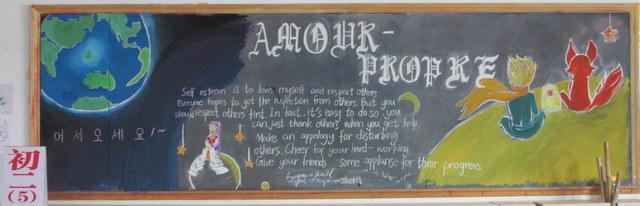 AMOUR-
PROPRE
Self esteem is to love myself and respect others.
Everyone hopes to get the from others. but you
should respect others first. In fact, it's easy to do so. you
can just thank others when you get help.
Make an appology for disturbing
others. Cheer for your hard-working.
Give your friends some applause for their progress
어서오세요!~
初二
(5)